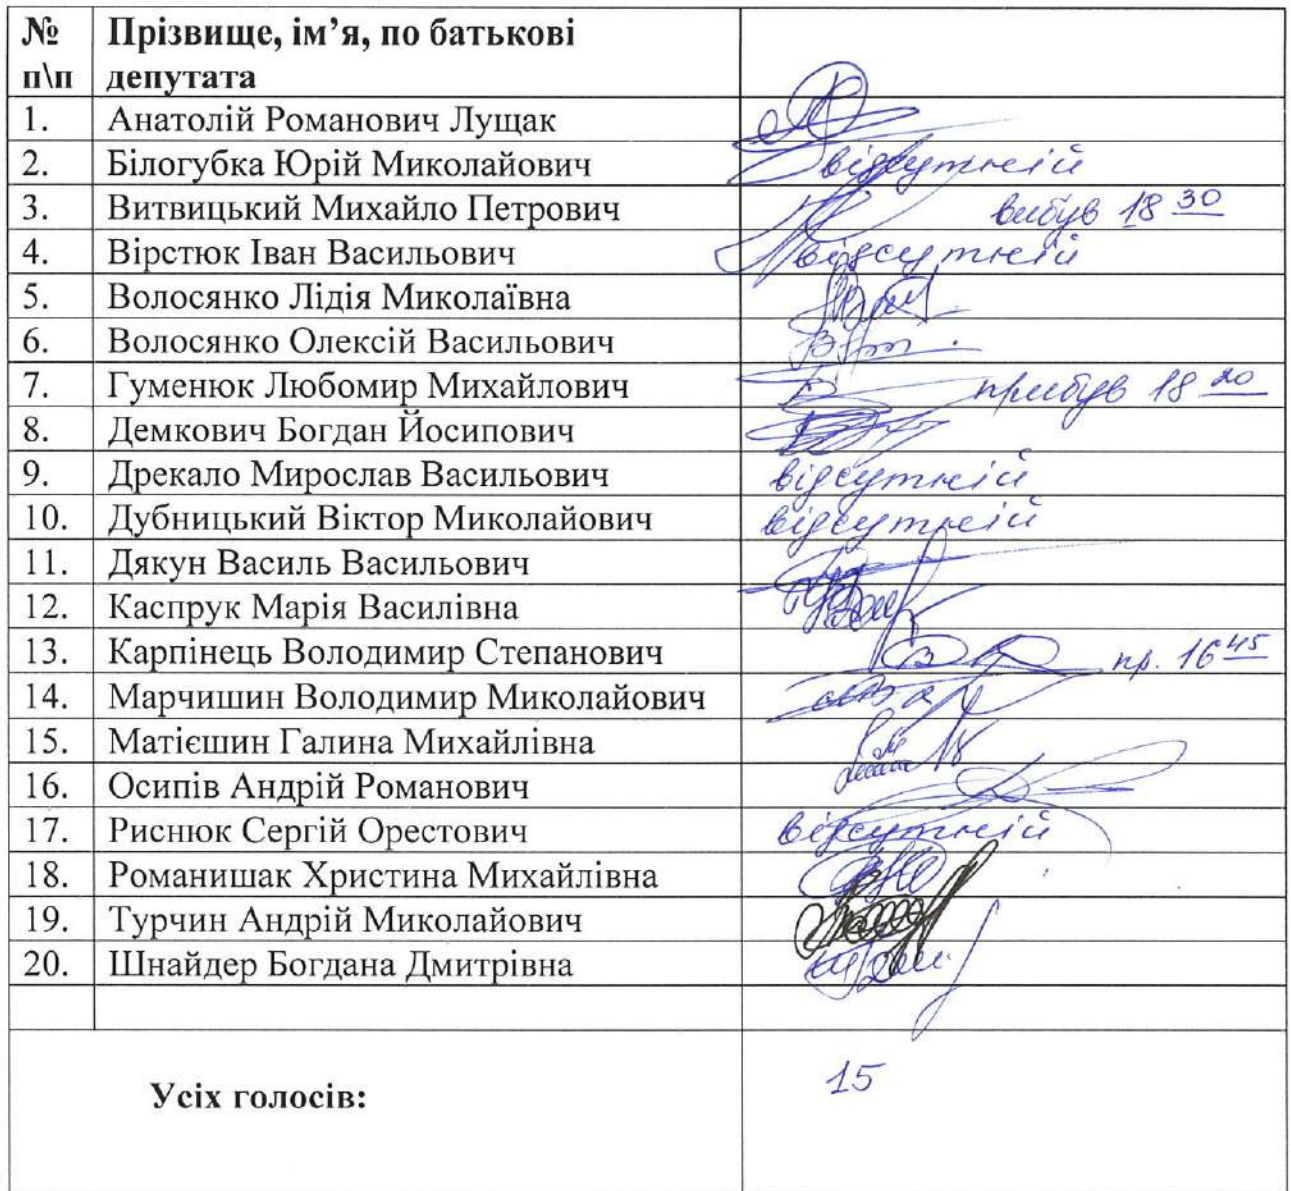 № Прізвище, ім’я, по батькові
п\п депутата
1. Анатолій Романович Лущак
2. Білогубка Юрій Миколайович відсутній
3. Витвицький Михайло Петрович вибув 18 30
4. Вірстюк Іван Васильович відсутній
5. Волосянко Лідія Миколаївна
6. Волосянко Олексій Васильович
7. Гуменюк Любомир Михайлович прибув 18 20
8. Демкович Богдан Йосипович
9. Дрекало Мирослав Васильович відсутній
10. Дубницький Віктор Миколайович відсутній
11. Дякун Василь Васильович
12. Каспрук Марія Василівна
13. Карпінець Володимир Степанович пр. 16 45
14. Марчишин Володимир Миколайович
15. Матієшин Галина Михайлівна
16. Осипів Андрій Романович
17. Риснюк Сергій Орестович відсутній
18. Романишак Христина Михайлівна
19. Турчин Андрій Миколайович
20. Шнайдер Богдана Дмитрівна
Усіх голосів: 15